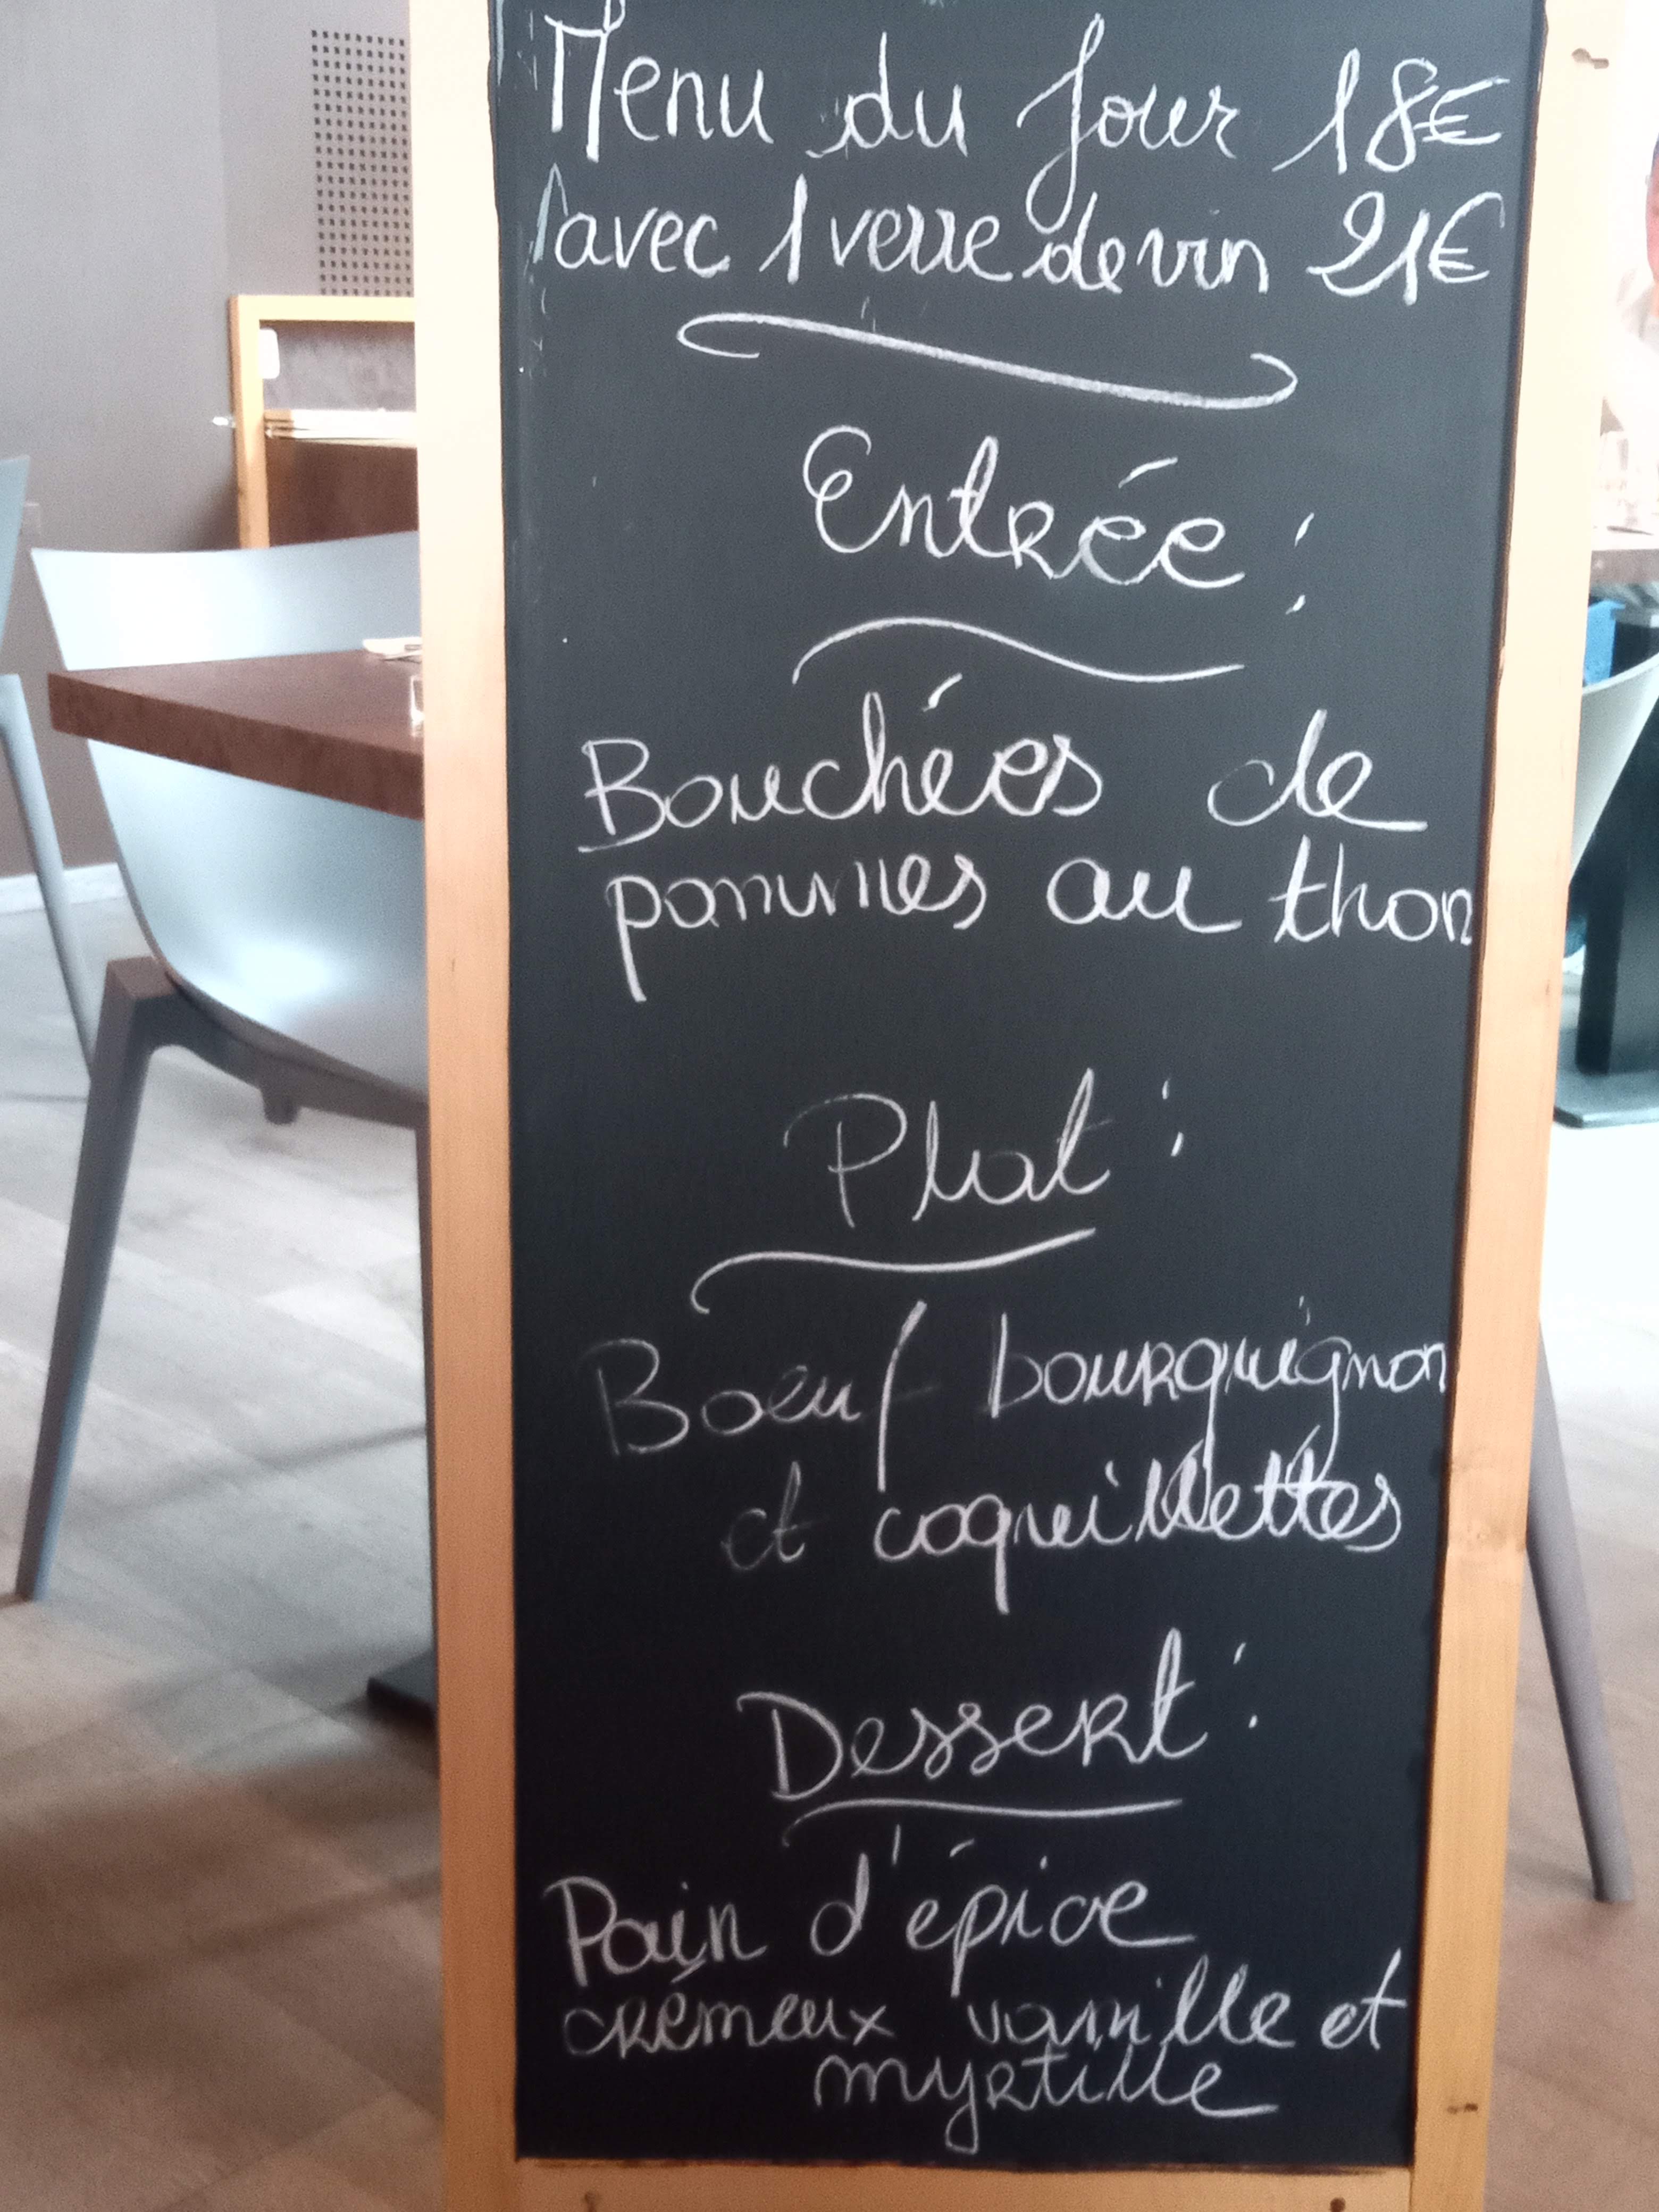 Menu du Jour 18€
avec 1 verre de vin 21€
Entrée :
Bouchées de
pommes au thon
Plat :
Boeuf bourguignon
et coquillettes
Dessert :
Pain d'épice
crémeux vanille et
myrtille